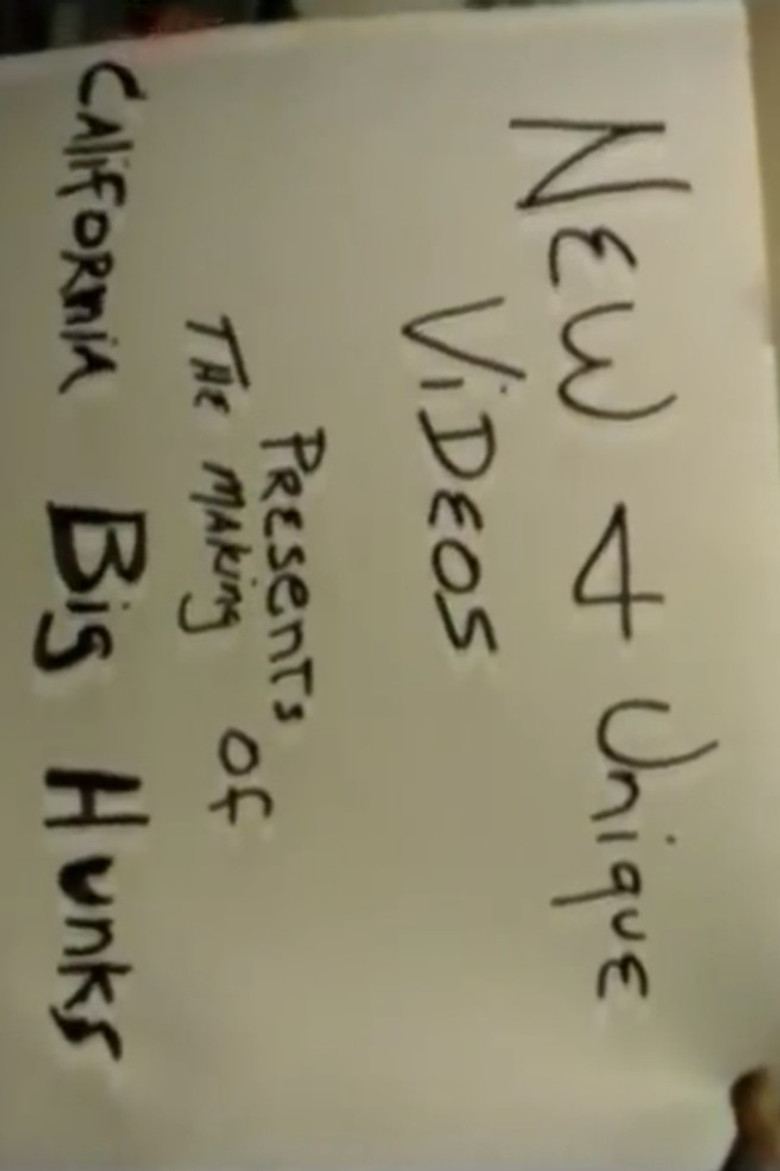 NEW 4 UniquE
ViDEOS
PRESENTS
THE MAKing OF
CAliFORniA Big Hunks